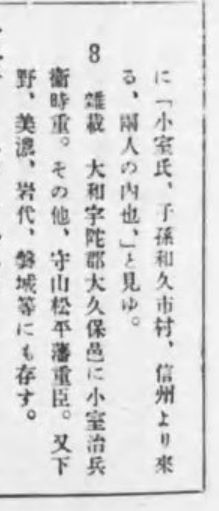 に「小室氏、子孫和久市村、信州より來
る、兩人の内也、」と見ゆ。
8 雜載 大和宇陀郡大久保邑に小室治兵
衞時重。その他、守山松平藩重臣。又下
野、美濃、岩代、磐城等にも存す。